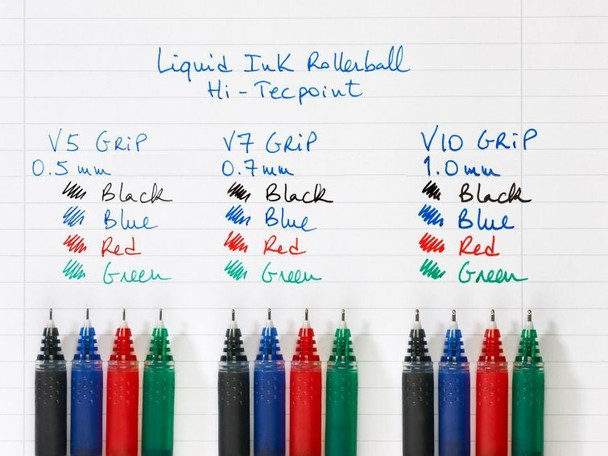 Liquid Ink Rollerball
Hi-Tecpoint
V5 GRiP
0.5mm
Black
Blue
Red
Green
V7 GRiP
0.7mm
Black
Blue
Red
Green
V10 GRiP
1.0mm
Black
Blue
Red
Green